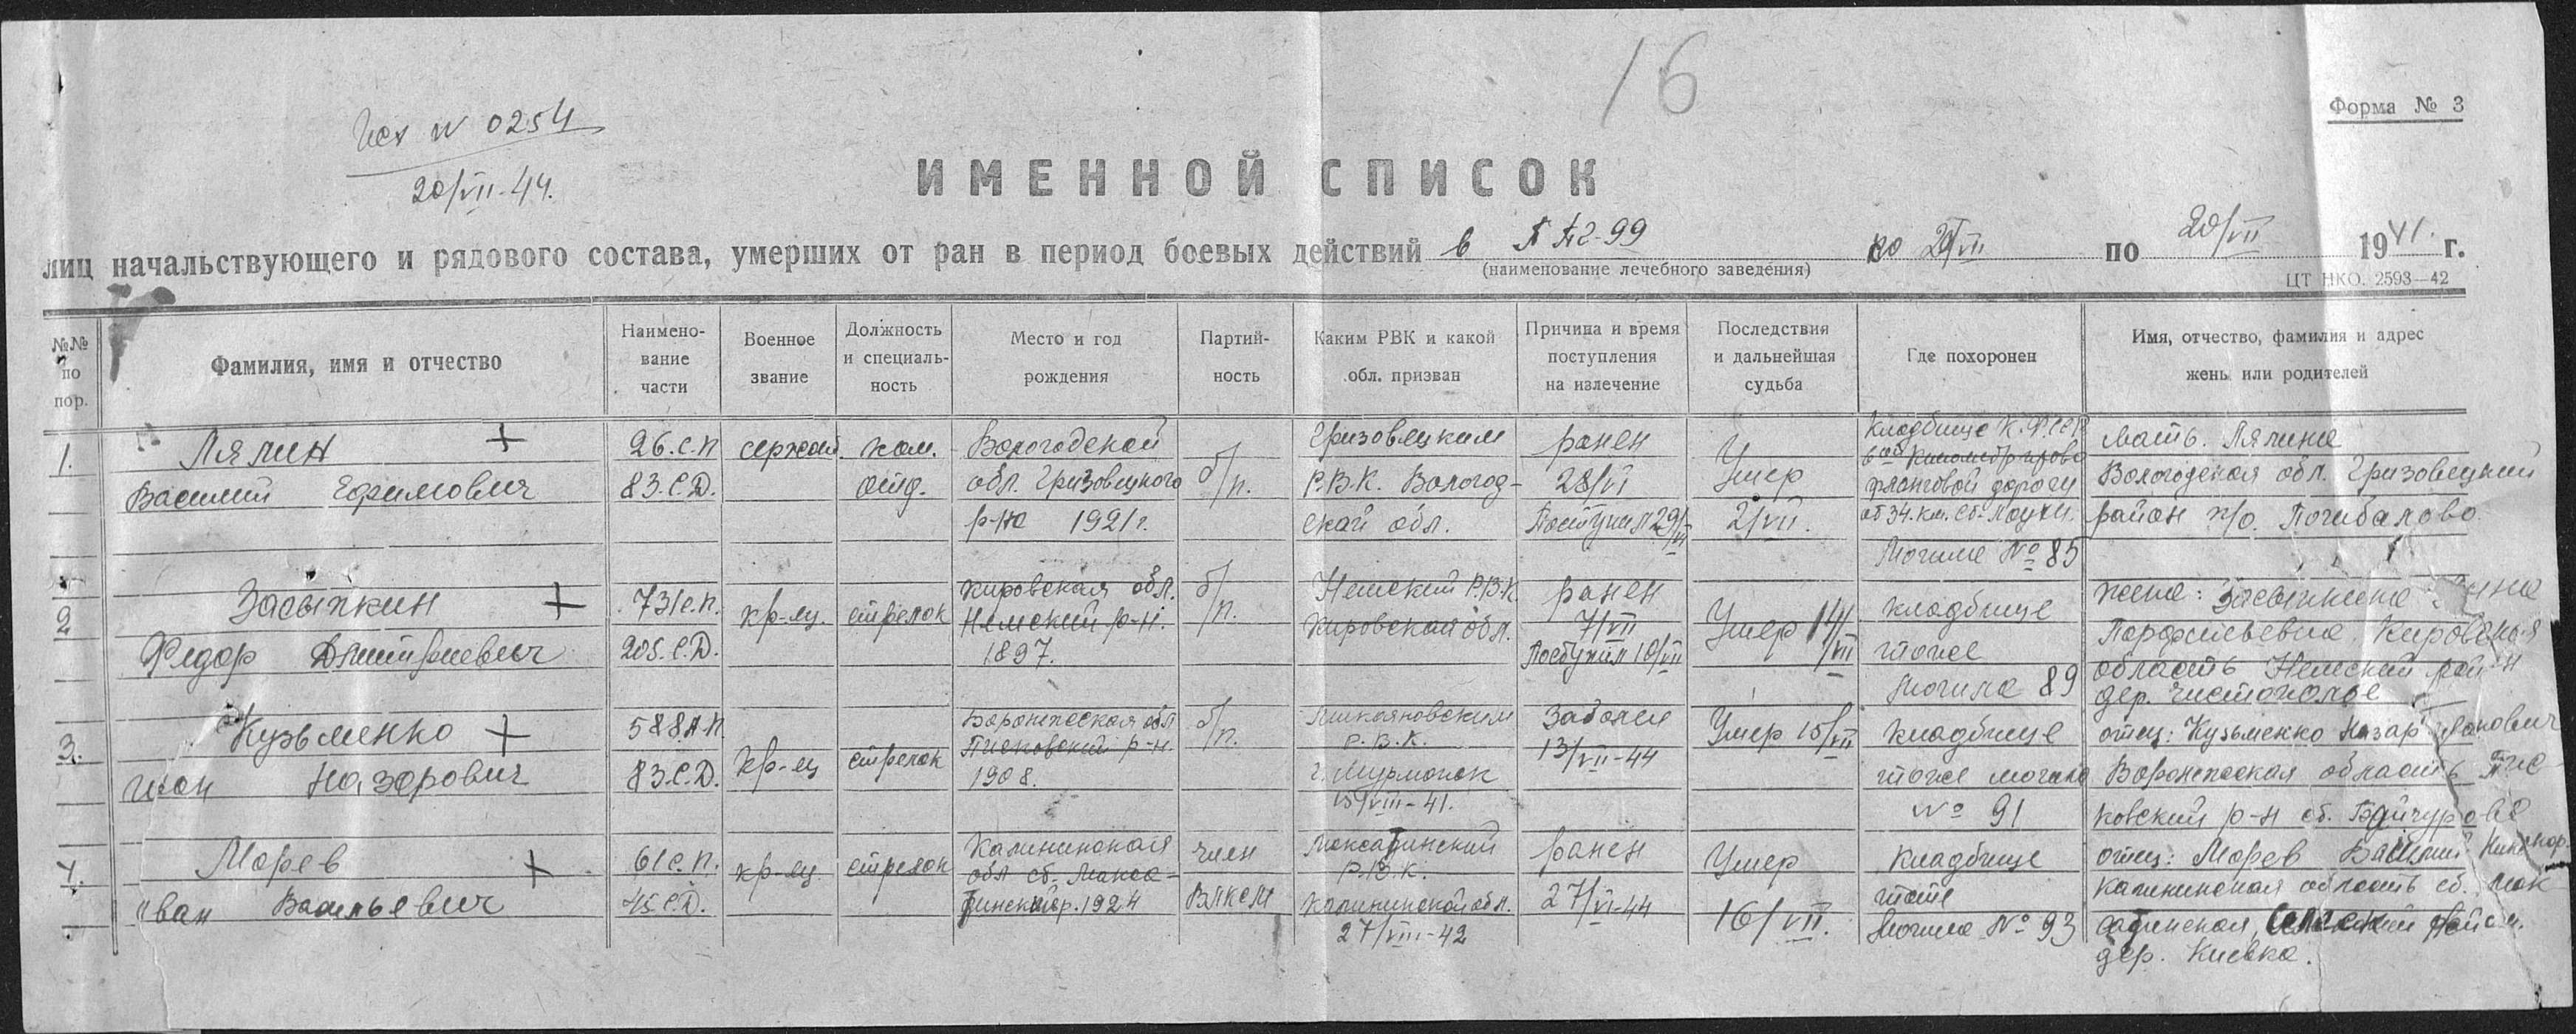 16
Форма № 3
Исх № 0254
20/VII-44.
ИМЕННОЙ СПИСОК
лиц начальствующего и рядового состава, умерших от ран в период боевых действий в 99 по 20/VII 1941. г.
(наименование лечебного заведения)
ЦТ НКО. 2593—42
№№ по пор.
Фамилия, имя и отчество
Наимено-
вание
части
Военное
звание
Должность
и специаль-
ность
Место и год
рождения
Партий-
ность
Каким РВК и какой
обл. призван
Причина и время
поступления
на излечение
Последствия
и дальнейшая
судьба
Где похоронен
Имя, отчество, фамилия и адрес
жены или родителей
1.
Лялин +
Василий Ефимович
26.С.П
83.С.Д.
сержант.
ком.
отд.
Вологодской
обл. Грязовецкого
р-на 1921 г.
б/п.
Грязовецким
Р.В.К. Вологод-
ской обл.
ранен
28/VI
Поступил 29/VI
Умер
2/VII.
Кладбище К.Ф.ССР
6ой километр
фланговой дороги
от 34. км. ст. Лоухи.
Могила № 85
мать. Лялина
Вологодская обл. Грязовецкий
район п/о. Погибалово.
2
Засыпкин +
Федор Дмитриевич
731с.п.
205.С.Д.
кр-ец.
стрелок
Кировская обл.
Немский р-н.
1897.
б/п.
Немский Р.В.К
Кировской обл.
ранен
7/VII
Поступил 10/VII
Умер 14/VII
кладбище
тоже
могила 89
жена: Засыпкина
Кировская
область Немский район
дер. Чистополье
3.
Кузьменко +
Иван Назарович
588.А.П
83.С.Д.
кр-ец
стрелок
Воронежская обл
р-н.
1908.
б/п.
Р.В.К.
г. Мурманск
15/VIII-41.
Заболел
13/VII-44
Умер 15/VII
кладбище
тоже могила
№ 91
отец: Кузьменко Назар Иванович
Воронежская область Пис
ковский р-н ст. Байчурово
4.
Морев +
Иван Васильевич
61с.п.
45.С.Д.
кр-ец
стрелок
Калининская
обл ст. Макса-
тинский р. 1924
член
ВЛКСМ
Максатинский
Р.В.К.
Калининской обл.
27/VIII-42
ранен
27/VI-44
Умер
16/VII.
кладбище
тоже
Могила № 93
отец: Морев Василий Никанор.
Калининская область ст. Мак
сатинская, район.
дер. Киевка.